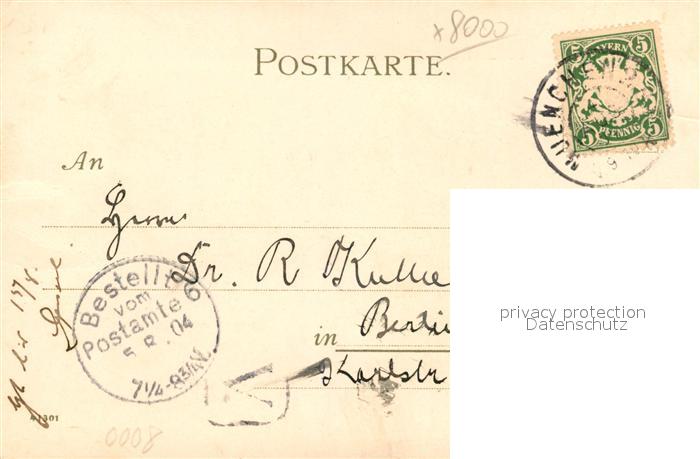 x8000
POSTKARTE.
5 BAYERN 5
5 PFENNIG 5
MUENCHEN
An
Herrn
Dr. R Kulke
in Berlin
Karlstr
Bestellt
vom
Postamte 6
5 8. 04
7¼-8¾V.
privacy protection
Datenschutz
41301
0008